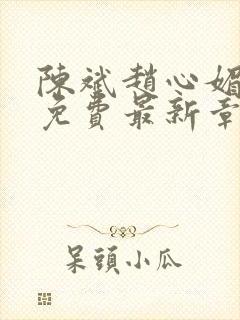 陳斌趙心媚
免費最新章
呆頭小瓜